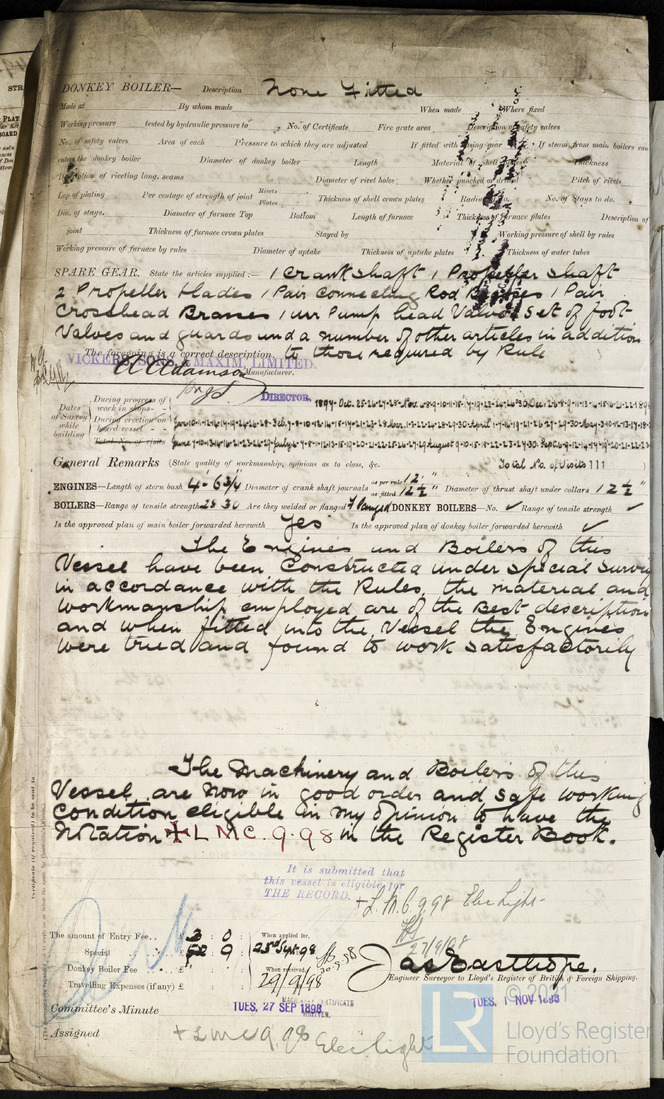 DONKEY BOILER— Description None Fitted
Made at By whom made When made Where fixed
Working pressure tested by hydraulic pressure to No. of Certificate Fire grate area Description of safety valves
No. of safety valves Area of each Pressure to which they are adjusted If fitted with easing gear If steam from main boilers can
enter the donkey boiler Diameter of donkey boiler Length Material of shell plates Thickness
Description of riveting long. seams Diameter of rivet holes Whether punched or drilled Pitch of rivets
Lap of plating Per centage of strength of joint Rivets Plates Thickness of shell crown plates Radius No. of Stays to do.
Dia. of stays. Diameter of furnace Top Bottom Length of furnace Thickness of furnace plates Description of
joint Thickness of furnace crown plates Stayed by Working pressure of shell by rules
Working pressure of furnace by rules Diameter of uptake Thickness of uptake plates Thickness of water tubes
SPARE GEAR. State the articles supplied:— 1 Crank shaft 1 Propeller shaft
2 Propeller blades 1 Pair Connecting Rod Brasses 1 Pair
Crosshead Brasses 1 air Pump head Valve 1 Set of foot
Valves and guards and a number of other articles in addition
to those required by Rule
The foregoing is a correct description,
VICKERS, SONS & MAXIM, LIMITED.
A Adamson Manufacturer.
DIRECTOR.
Dates of Survey while building
During progress of work in shops—
During erection on board vessel—
Total No. of visits
General Remarks (State quality of workmanship, opinions as to class, &c. Total No. of Visits 111
ENGINES—Length of stern bush 4-6 3/4 Diameter of crank shaft journals as per rule 12" as fitted 12 1/2" Diameter of thrust shaft under collars 12 1/2"
BOILERS—Range of tensile strength 28-30 Are they welded or flanged Flanged DONKEY BOILERS—No. ✓ Range of tensile strength ✓
Is the approved plan of main boiler forwarded herewith Yes Is the approved plan of donkey boiler forwarded herewith ✓
The Engines and Boilers of this
Vessel have been Constructed under Special Survey
in accordance with the Rules, the material and
workmanship employed are of the Best description
and when fitted into the Vessel the Engines
were tried and found to work satisfactorily
The Machinery and Boilers of this
Vessel are now in good order and safe working
Condition eligible in my opinion to have the
Notation ✠ LMC. 9.98 in the Register Book.
It is submitted that
this vessel is eligible for
THE RECORD. + L.M.C 9.98 Elec Light-
27/9/98
The amount of Entry Fee.. £ 3 : 0 : When applied for,
Special .. £ 9 : 25th Sept. 98
Donkey Boiler Fee .. £ : : When received,
Travelling Expenses (if any) £ : : 29/9/98
Jas Easthope.
Engineer Surveyor to Lloyd's Register of British & Foreign Shipping.
Committee's Minute TUES, 27 SEP 1898 MACHINERY CERTIFICATE WRITTEN. TUES, 1 NOV 1898
Assigned + LMC 9.98 Elec light
© 2021
LR
Lloyd's Register
Foundation